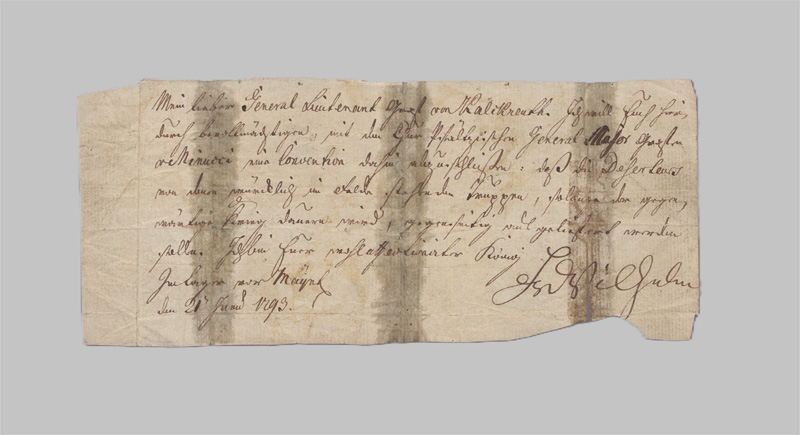 Mein lieber General Lieutenant Graf von Kalckreuth. Ich will Euch hie-
durch bevollmächtigen, mit dem Chur Pfältzischen General Major Grafen
v Minucci eine Convention dahin abzuschließen: daß die Deserteurs
von denen würcklich im Felde stehenden Truppen, solange der gegen-
wärtige Krieg dauern wird, gegenseitig ausgeliefert werden
sollen. Ich bin Euer wohlaffectionirter König
Im Lager vor Mayntz
den 21 Juny 1793.
FrWilhelm